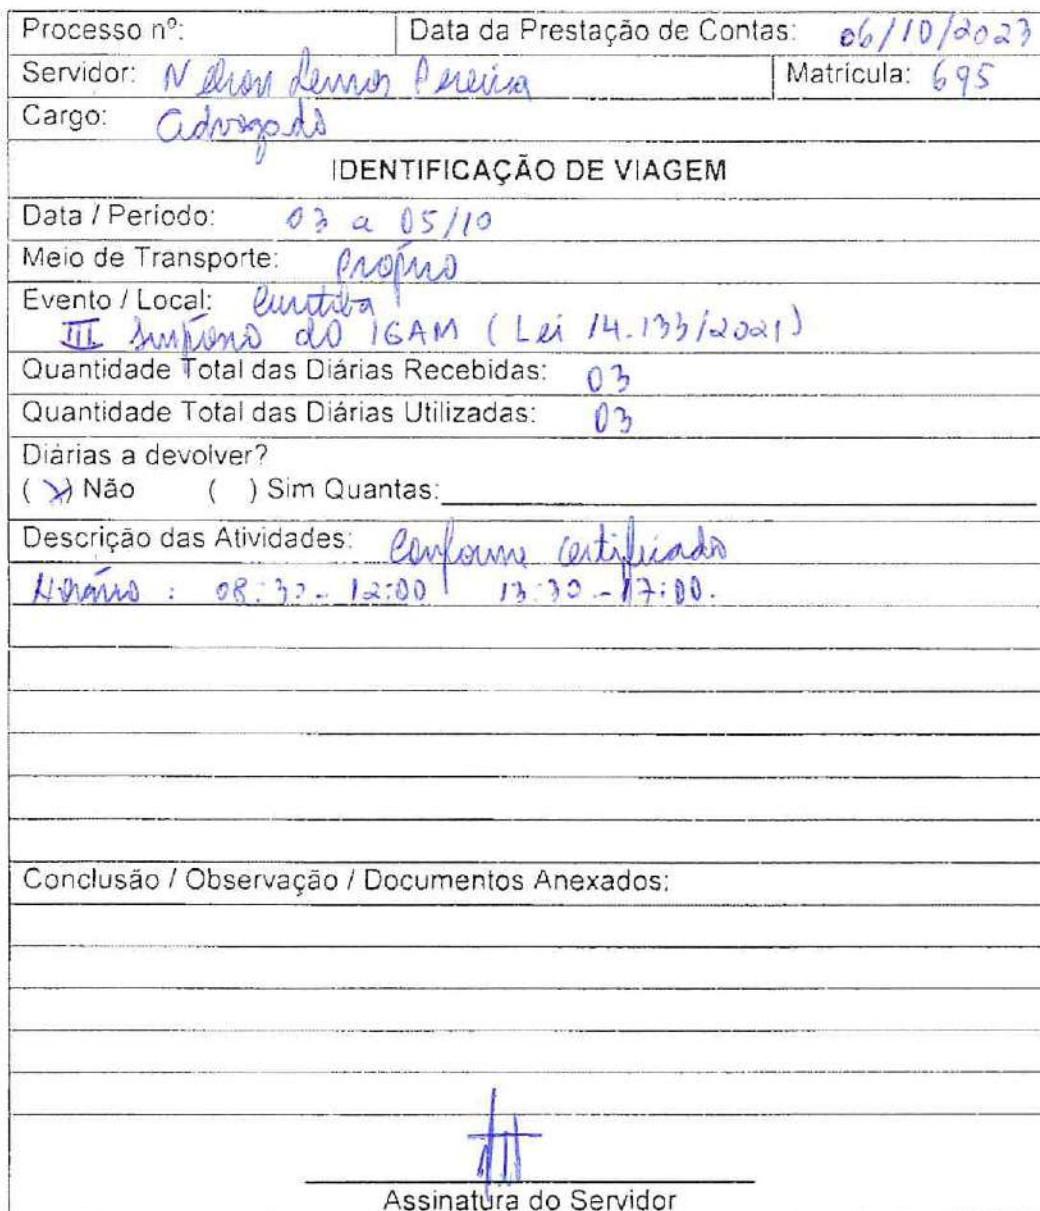 Processo nº: Data da Prestação de Contas: 06/10/2023
Servidor: Nelson Lemos Pereira Matrícula: 695
Cargo: Advogado
IDENTIFICAÇÃO DE VIAGEM
Data / Período: 03 a 05/10
Meio de Transporte: Próprio
Evento / Local: Curitiba
III Simpósio do IGAM (Lei 14.133/2021)
Quantidade Total das Diárias Recebidas: 03
Quantidade Total das Diárias Utilizadas: 03
Diárias a devolver?
(X) Não ( ) Sim Quantas:
Descrição das Atividades: Conforme certificado
Horário: 08:30 - 12:00 13:30 - 17:00.
Conclusão / Observação / Documentos Anexados:
Assinatura do Servidor